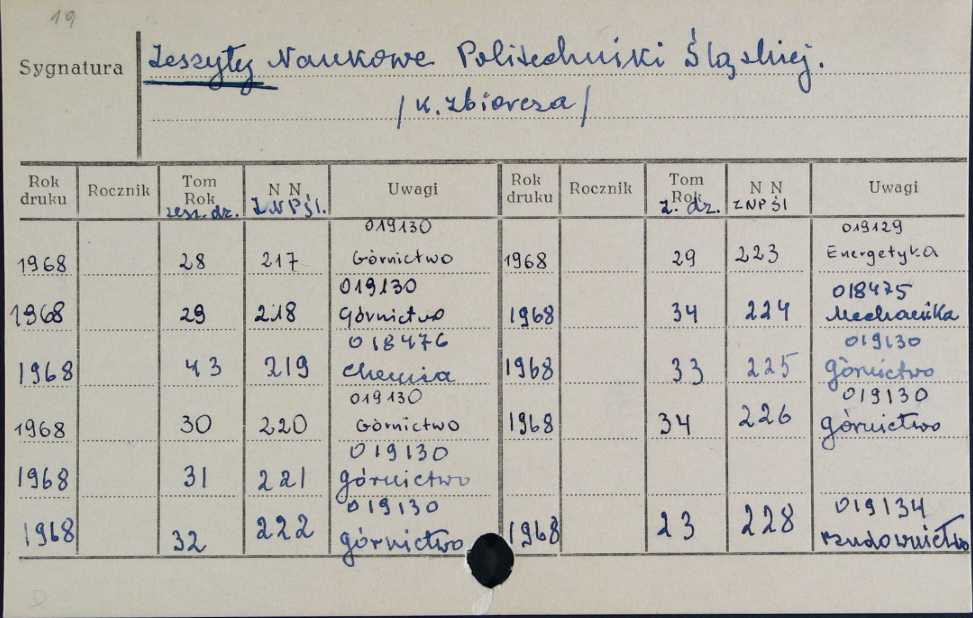 19
Sygnatura Zeszyty Naukowe Politechniki Śląskiej.
/K. zbiorcza/
Rok druku Rocznik Tom Rok zesz. dz. N N ZNPŚl. Uwagi Rok druku Rocznik Tom Rok z. dz. N N ZNPŚl Uwagi
1968 28 217 019130 Górnictwo 1968 29 223 019129 Energetyka
1968 29 218 019130 Górnictwo 1968 34 224 018475 Mechanika
1968 43 219 018476 Chemia 1968 33 225 019130 górnictwo
1968 30 220 019130 Górnictwo 1968 34 226 019130 górnictwo
1968 31 221 019130 górnictwo
1968 32 222 019130 górnictwo 1968 23 228 019134